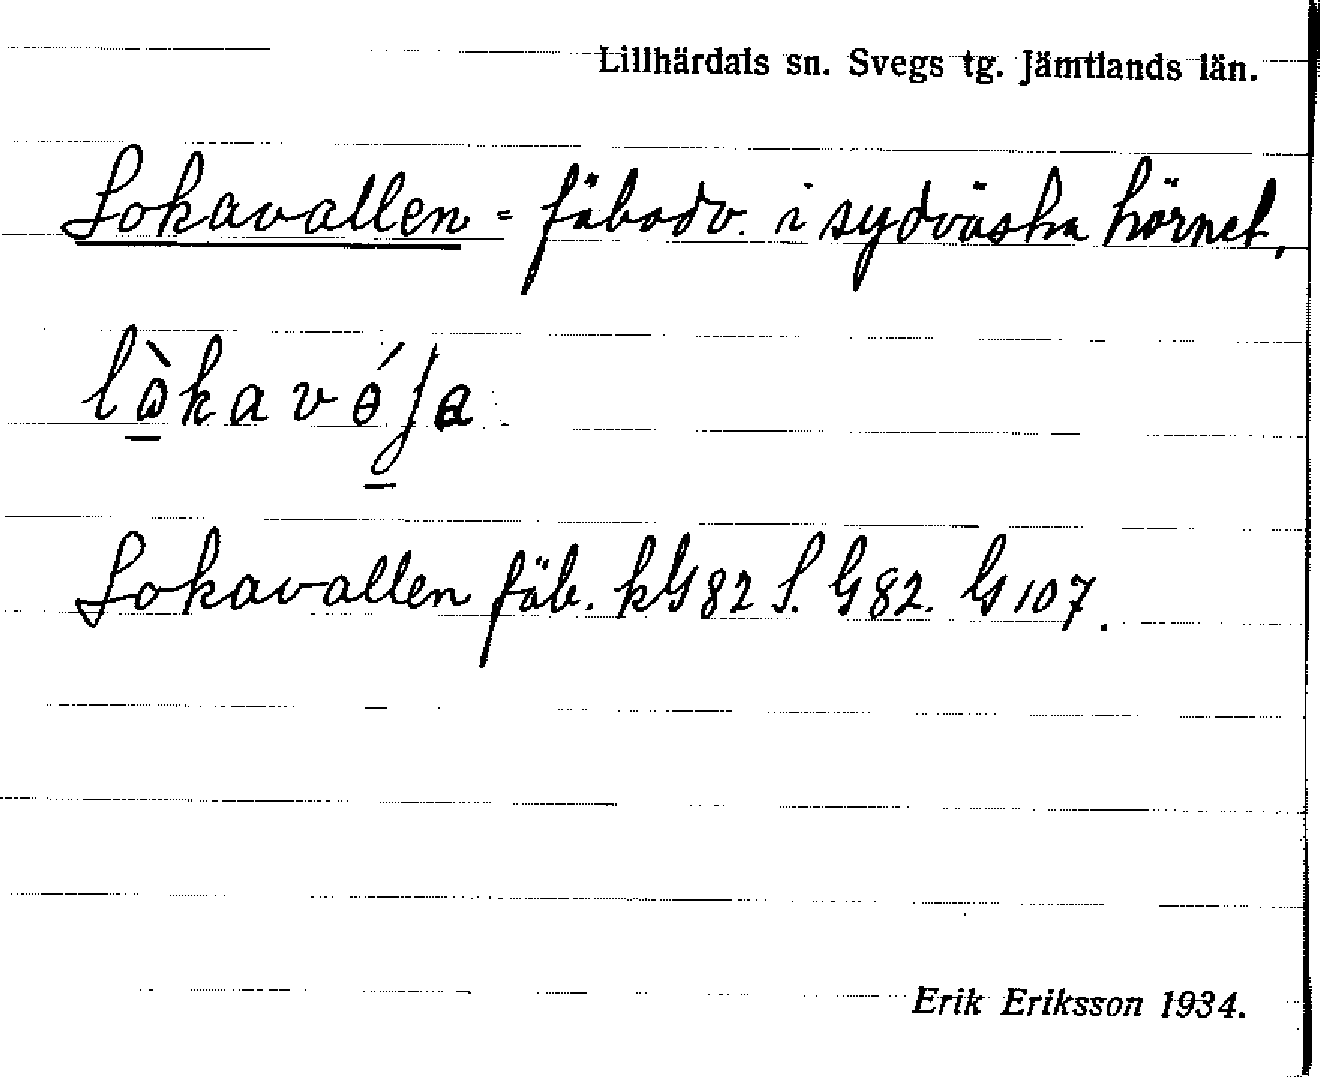 Lillhärdals sn. Svegs tg. Jämtlands län.
Lokavallen = fäbodv. i sydvästra hörnet.
Lokavallen fäb. kG82 S. G82. G107.
Erik Eriksson 1934.